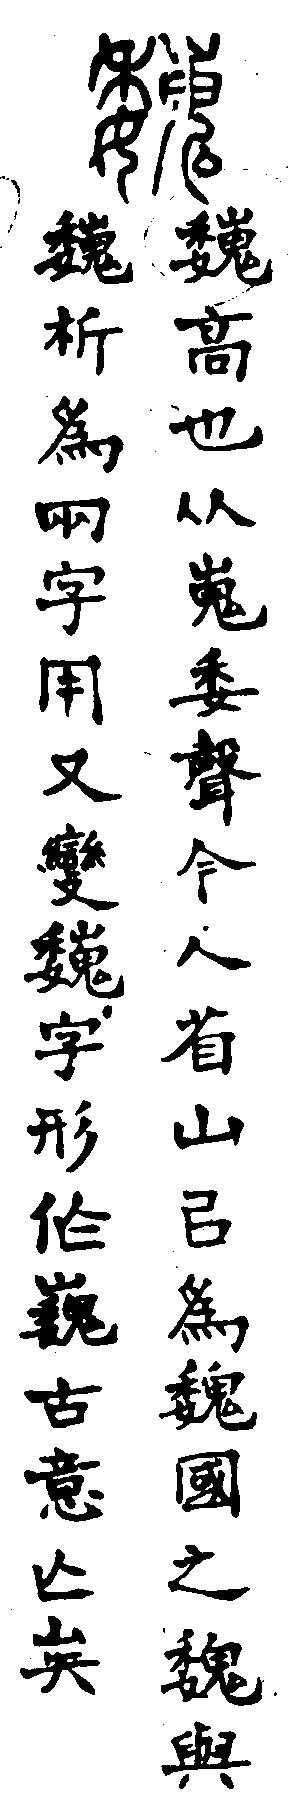 巍
巍高也从嵬委聲今人省山㠯爲魏國之魏與
巍析爲兩字用又變巍字形作巍古意亾矣